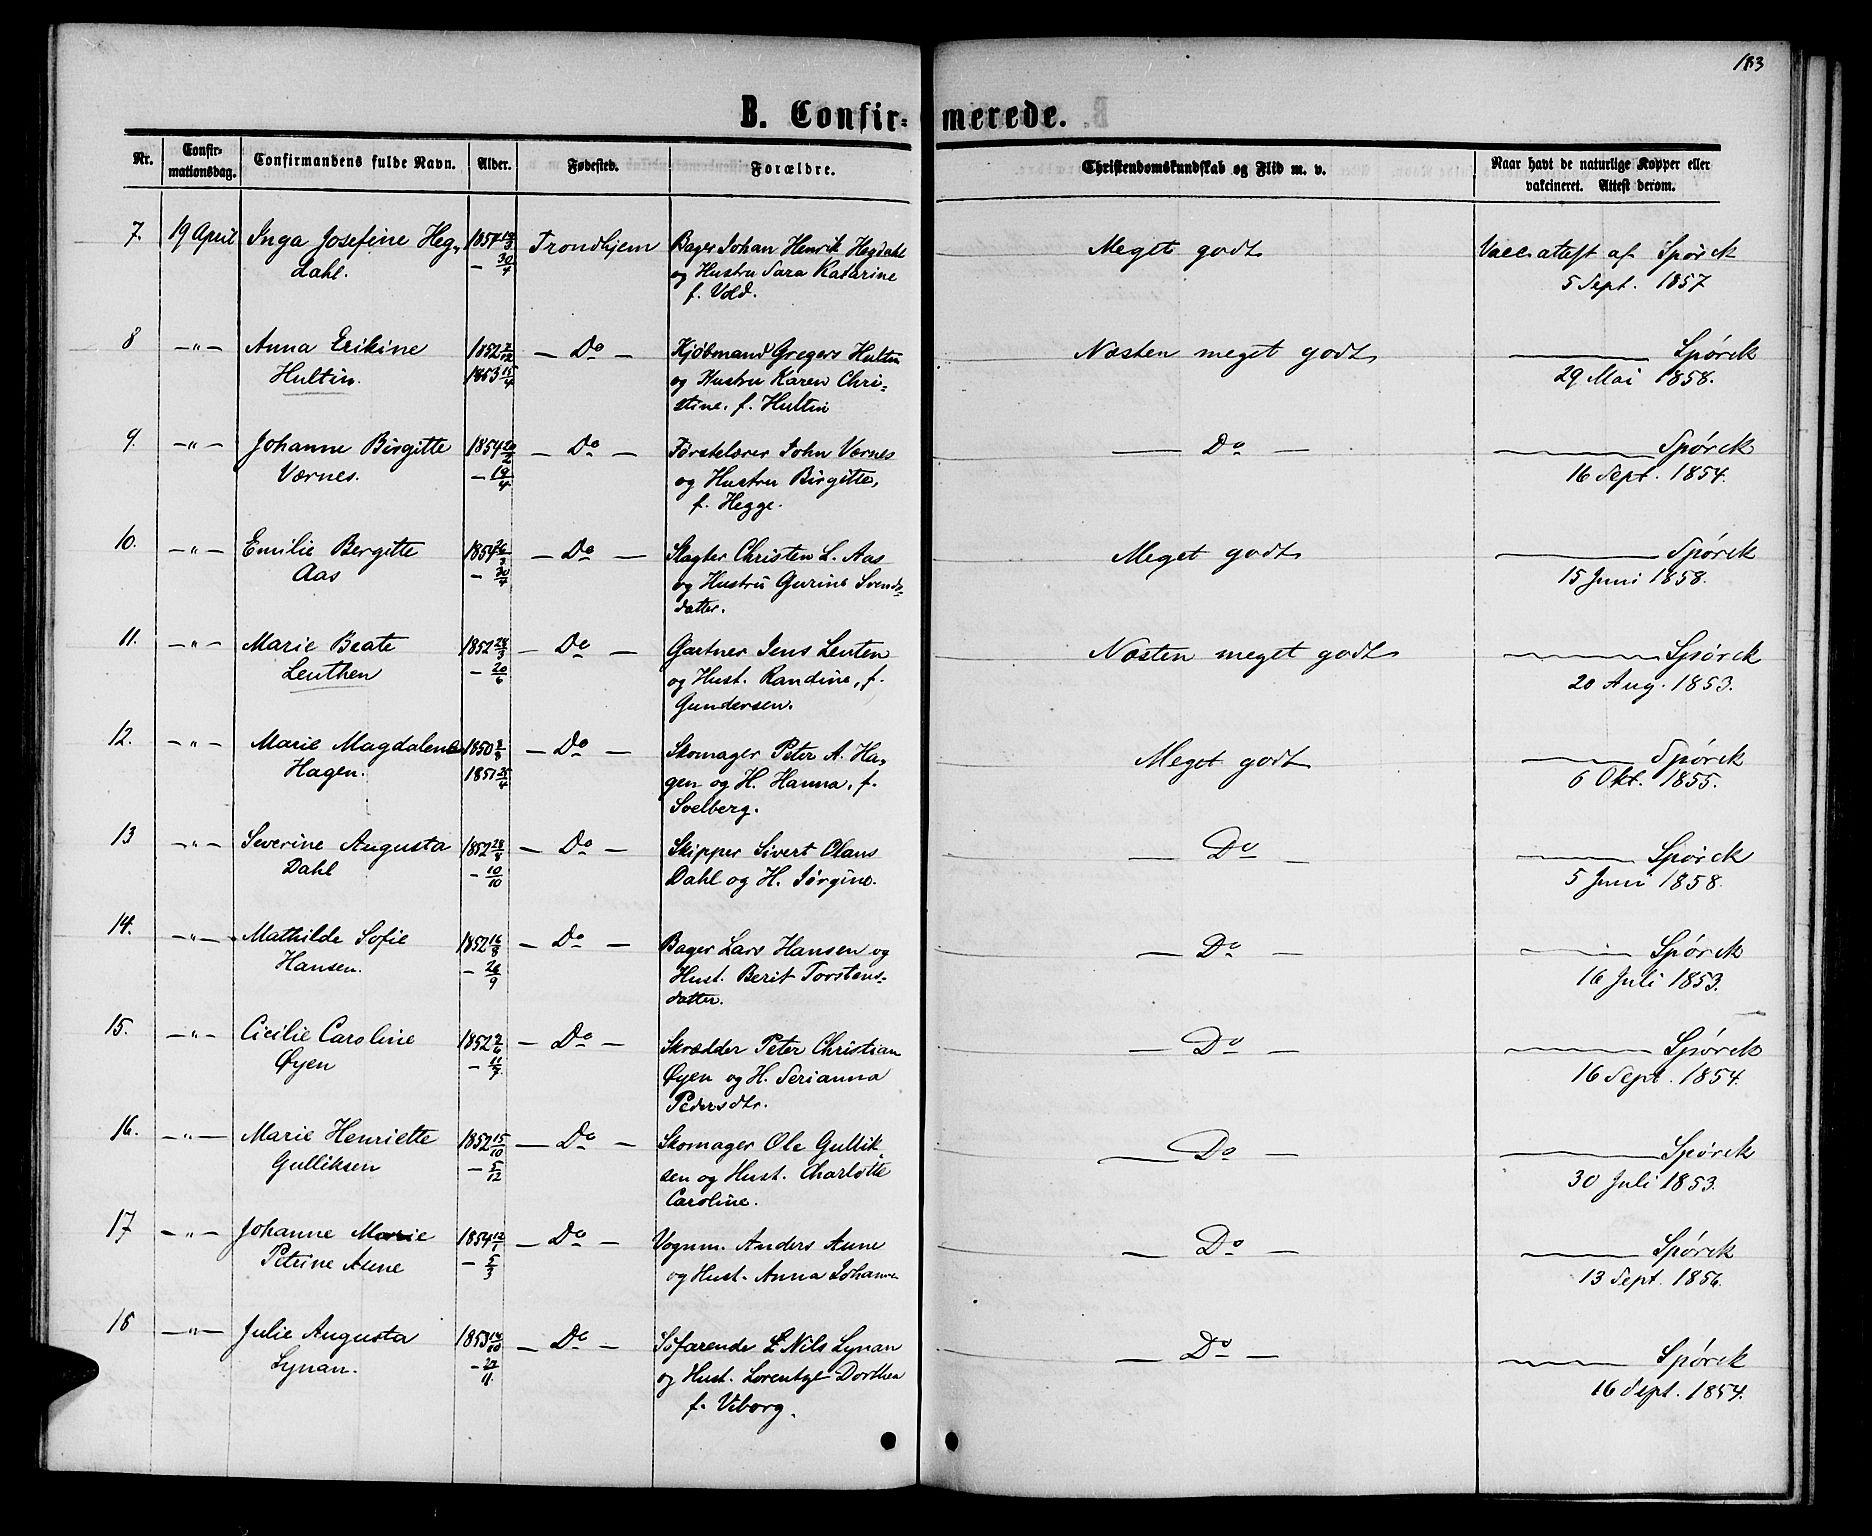 183
B. Confirmerede.
Nr. Confirmationsdag. Confirmandens fulde Navn. Alder. Fødested. Forældre. Christendomskundskab og Flid m. v. Naar havt de naturlige Kopper eller vakcineret. Attest derom.
7. 19 April Inga Josefine Heg- 1854 Trondhjem Bager Johan Henrik Hegdahl Meget godt Vacc. attest af Spørck
dahl. – 30/4 og Hustru Sara Katarine 5 Sept. 1857
f. Vold.
8 –"– Anna Erikine 1852 2/12 – Do – Kjøbmand Gregers Hultin Næsten meget godt Spørck
Hultin. 1853 15/4 og Hustru Karen Chri- 29 Mai 1858.
stine, f. Hultin
9. –"– Johanne Birgitte 1854 20/2 – Do – Førstelærer John Værnes – Do – Spørck
Værnes. – 19/4 og Hustru Birgitte, 16 Sept. 1854.
f. Hegge.
10. –"– Emilie Bergitte 1854 26/3 – Do – Slagter Christen L. Aas Meget godt Spørck
Aas – 30/4 og Hustru Gurine Svends- 15 Juni 1858.
datter.
11. –"– Marie Beate 1852 28/3 – Do – Gartner Jens Leuten Næsten meget godt Spørck
Leuthen – 20/6 og Hust. Randine, f. 20 Aug. 1853.
Gundersen.
12. –"– Marie Magdalena 1850 2/8 – Do – Skomager Peter A. Ha- Meget godt Spørck
Hagen. 1851 25/4 gen og H. Hanna, f. 6 Okt. 1855.
Soelberg.
13 –"– Severine Augusta 1852 28/8 – Do – Skipper Sivert Olaus – Do – Spørck
Dahl – 10/10 Dahl og H. Jørgine. 5 Juni 1858.
14. –"– Mathilde Sofie 1852 16/8 – Do – Bager Lars Hansen og – Do – Spørck
Hansen. – 26/9 Hust. Berit Torstens- 16 Juli 1853.
datter.
15. –"– Cicilie Caroline 1852 2/6 – Do – Skrædder Peter Christian – Do – Spørck
Øyen – 11/7 Øyen og H. Serianna 16 Sept. 1854.
Pedersdtr.
16. –"– Marie Henriette 1852 15/10 – Do – Skomager Ole Gullik- – Do – Spørck
Gulliksen – 5/12 sen og Hust. Charlotte 30 Juli 1853.
Caroline.
17 –"– Johanne Marie 1854 12/1 – Do – Vognm. Anders Aune – Do – Spørck
Petrine Aune – 5/3 og Hust. Anna Johanne 13 Sept. 1856.
18 –"– Julie Augusta 1853 14/10 – Do – Søfarende Nils Lynan – Do – Spørck
Lynan. – 27/11 og Hust. Lorentze Dorthea 16 Sept. 1854.
f. Viborg.